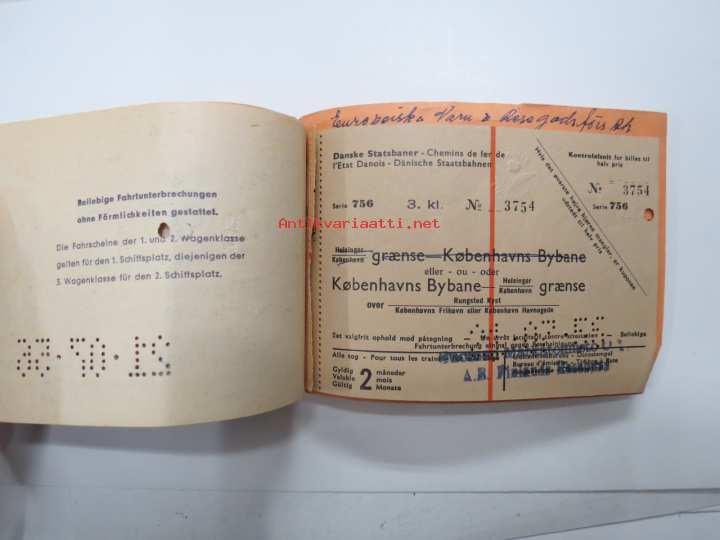 Beliebige Fahrtunterbrechungen
ohne Förmlichkeiten gestattet.
Die Fahrscheine der 1. und 2. Wagenklasse
gelten für den 1. Schiffsplatz, diejenigen der
3. Wagenklasse für den 2. Schiffsplatz.
21.07.56
Europeiska Varu &
Danske Statsbaner - Chemins de fer de
l'Etat Danois - Dänische Staatsbahnen
Kontrolafsnit for billet til
halv pris
№ 3754
Serie 756
Serie 756 3. kl. № 3754
Antikvariaatti.net
Hvis det øverste højre hjørne mangler, er kuponen
udstedt til halv pris
Helsingør
København grænse—Københavns Bybane
eller - ou - oder
Københavns Bybane— Helsingør
København grænse
over Rungsted Kyst
Københavns Frihavn eller Københavns Havnegade
Ret valgfrit ophold med påtegning
Fahrtunterbrechung
Beliebige
Alle tog - Pour tous les trains
Gyldig
Valable
Gültig 2 måneder
mois
Monate